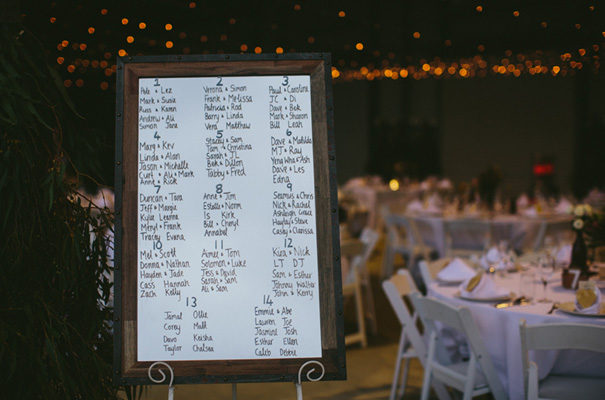 1
Pele & Lez
Mark & Susie
Russ & Karen
Andrew & Ali
Simon Jane
2
Verona & Simon
Frank & Melissa
Patricia & Rod
Barry & Linda
Vera Matthew
3
Paul & Caroline
JC & Di
Dave & Bek
Mark & Sharon
Bill Leah
4
Mary & Kev
Linda & Alan
Jason & Michelle
Curt & Ali & Mark
Anne & Rick
5
Stacey & Sam
Tom & Christina
Sarah & JL
Bek & Dillon
Tabby & Fred
6
Dave & Matilda
MJ & Ray
Yeng Wha & Ash
Dave & Les
Edna
7
Duncan & Tara
Jeff & Margie
Kylie Leanne
Meryl & Grant
Tracey Evans
8
Anne & Jim
Estelle & Norm
Is Kirk
Bill & Cheryl
Annabel
9
Seamus & Chris
Nick & Rachel
Ashleigh Grace
Hayley & Steve
Casey & Clarissa
10
Mel & Scott
Donna & Nathan
Hayden & Jade
Cass Hannah
Zach Kelly
11
Aimee & Tom
Solomon & Jess
Jess & David
Sarah & Sam
Ali & Sam
12
Kira & Nick
LT DJ
Sam & Esther
Johnny Walter
John & Kerry
13
Jamal Ollie
Corey Matt
Dave Keisha
Taylor Chelsea
14
Emmie & Abe
Lauren Joe
Jasmine Josh
Esther Ellen
Caleb Debbie